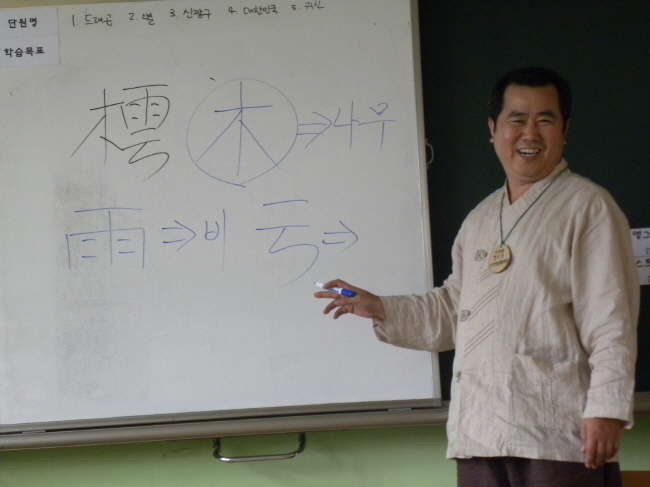 단원명 1. 드래곤 2. 별 3. 신짱구 4. 대한민국 5. 귀신
학습목표
樗 木 ⇒ 나무
雨 ⇒ 비 亏 ⇒
앵그